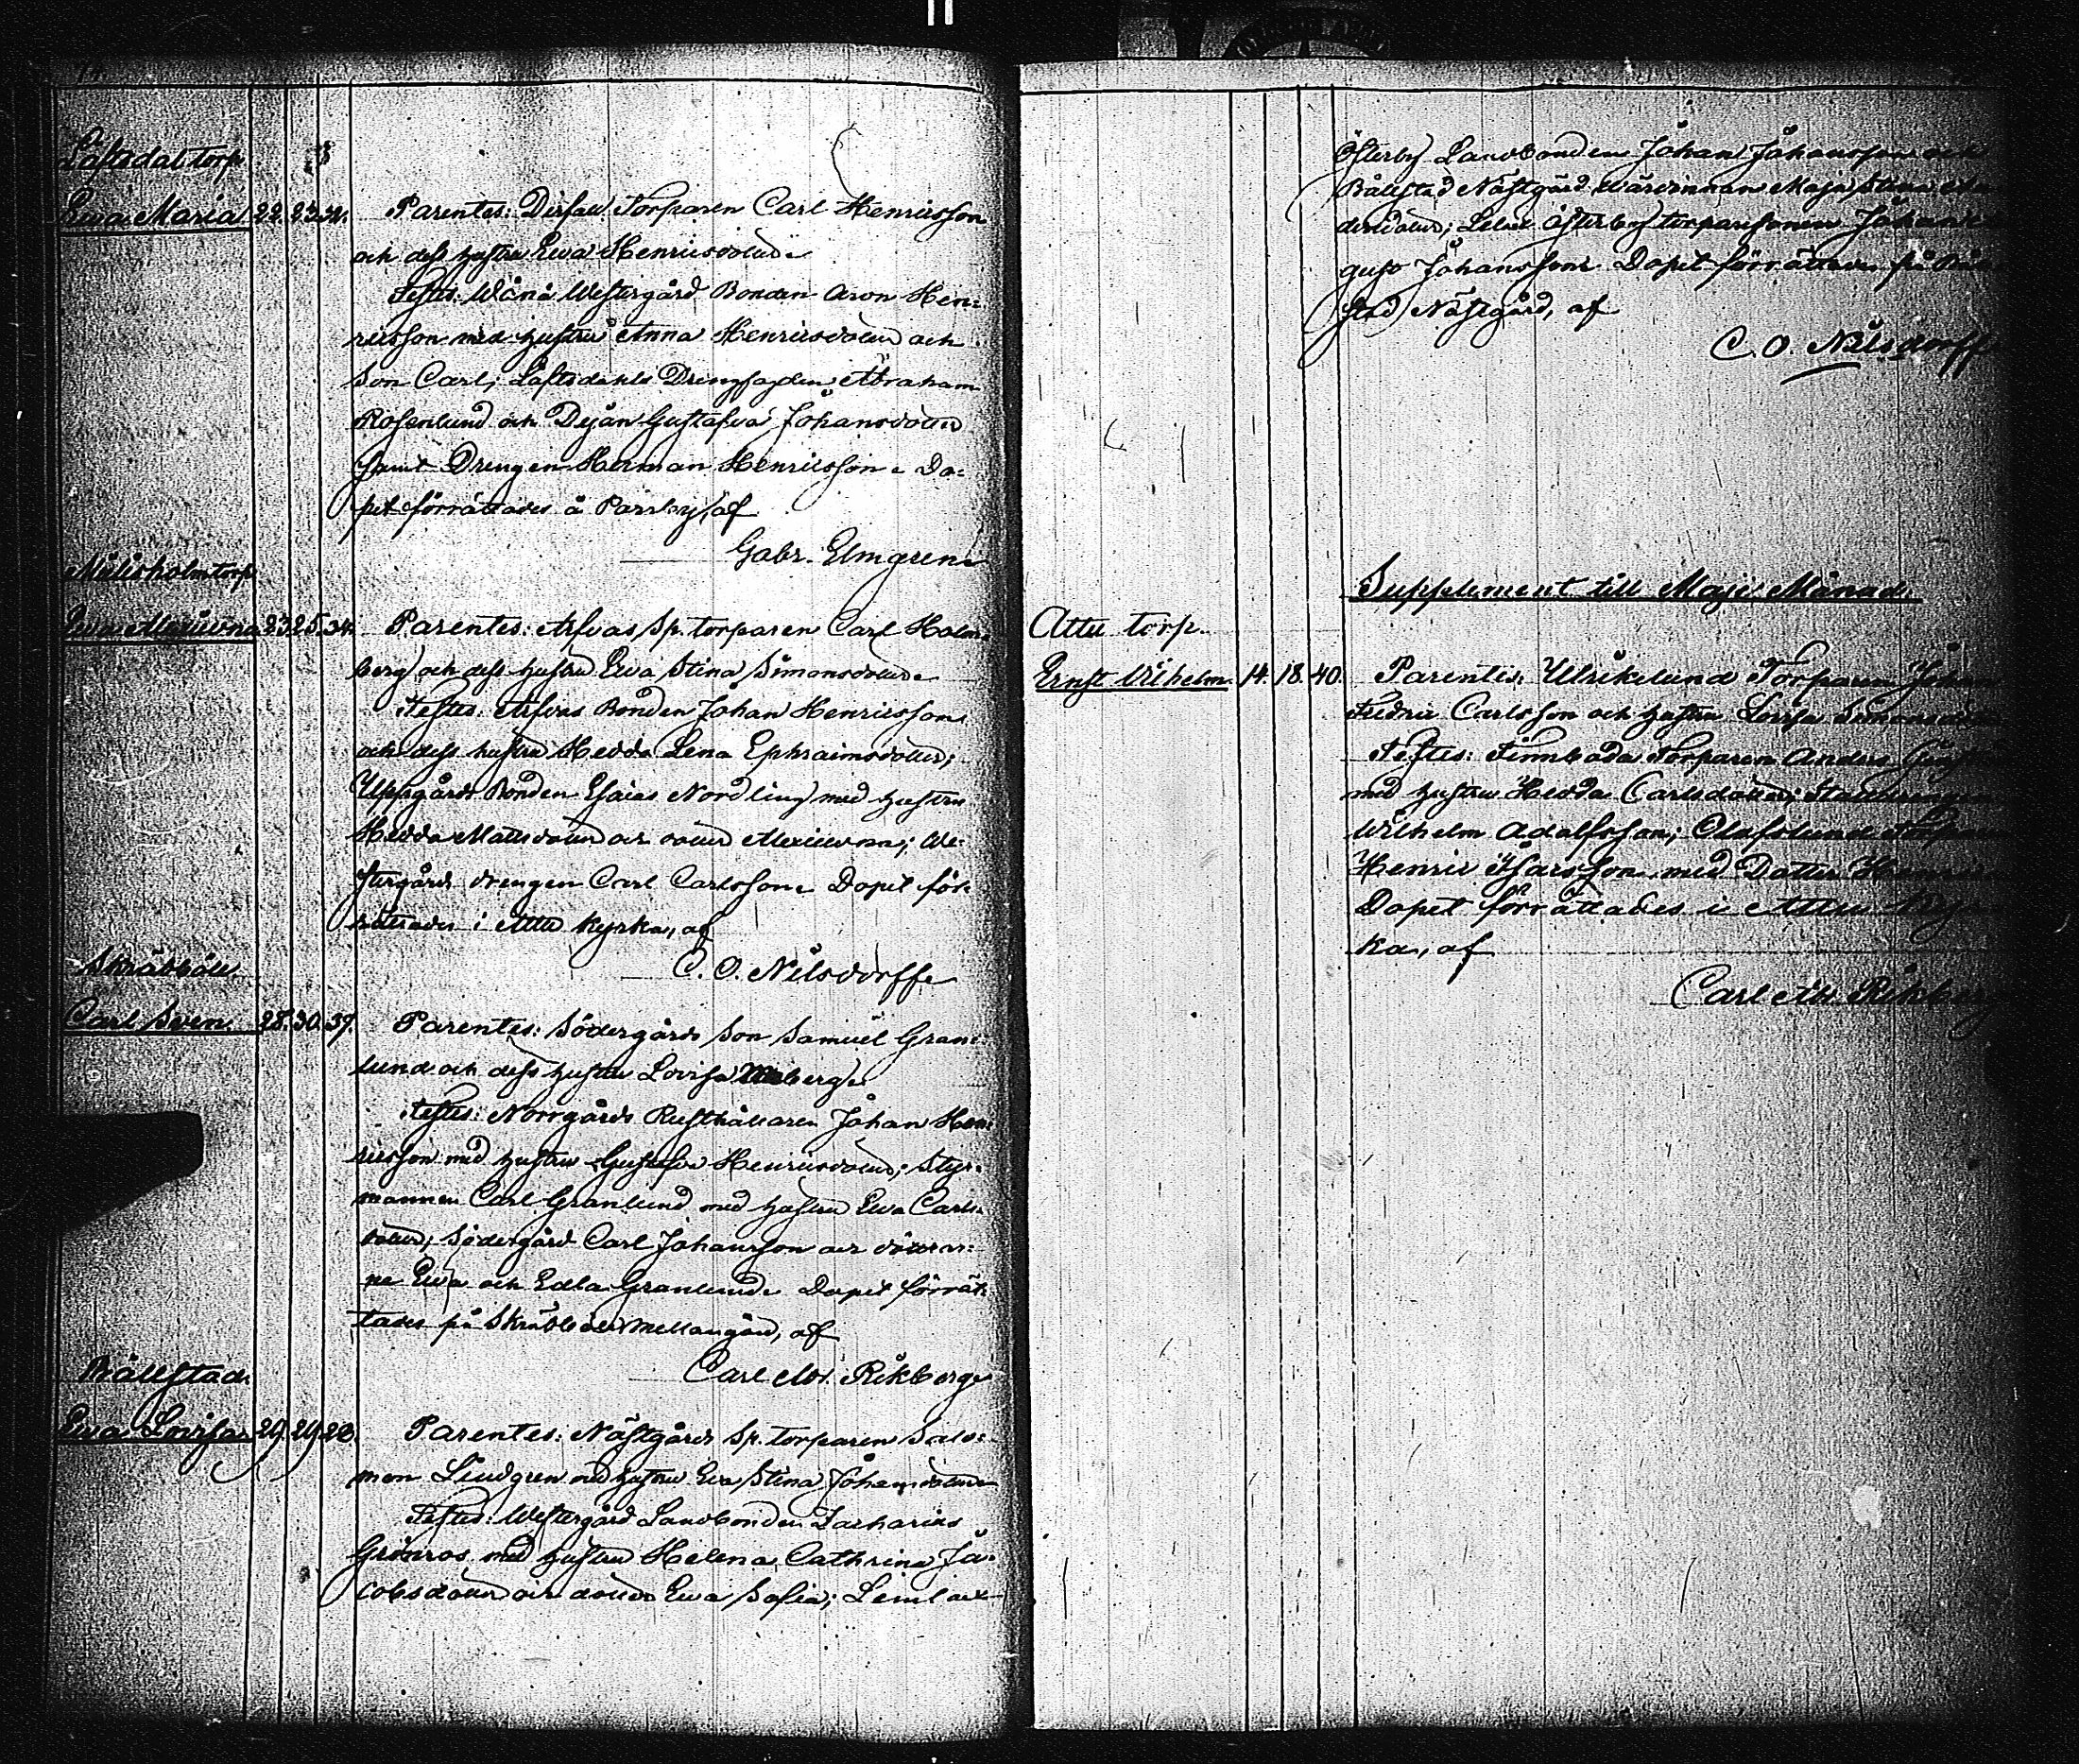 Låftsdal torp.
Ewa Maria 22. 23. 32. Parentes: Dersau Torparen Carl Henricsson
och dess hustru Ewa Henricsdotter.
Testes: Wånå Westergård Bonden Aron Hen=
ricsson med hustru Anna Henricsdotter och
Son Carl; Låftsdahls Drengfogden Abraham
Rosenlund och Dejan Gustafva Johansdotter
samt Drengen Herman Henricsson. Do=
pet förrättades å Parsby, af
Gabr. Elmgren.
Mälisholm torp
Ewa 23. 25. 34. Parentes: Arfvas Sp. torparen Carl Holm=
berg och dess hustru Ewa Stina Simonsdotter.
Testes: Arfvas Bonden Johan Henricsson
och dess hustru Hedda Lena Ephraimsdotter;
Uppgårds Bonden Esaias Nordling med hustru
Hedda Mattsdotter och dotter; We=
stergårds drengen Carl Carlsson. Dopet för=
rättades i Attu kyrka, af
C. O. Nilsdorff.
Skräbböle.
Carl Sven. 28. 30. 39. Parentes: Södergårds Son Samuel Gran=
lund och dess hustru Lovisa
Testes: Norrgårds Rusthållaren Johan Hen=
ricsson med hustru Gustafva Henricsdotter; Styr=
mannen Carl Granlund med hustru Ewa Carls=
dotter; Södergård Carl Johansson och döttrar=
ne Ewa och Edla Granlund. Dopet förrät=
tades på Skräbböle Mellangård, af
Carl Ab. Rikberg.
Bällstad.
Ewa Lovisa 29. 29. 28. Parentes: Nästgårds Sp. torparen Salo=
mon Lindgren med hustru Ewa Stina Johansdotter
Testes: Westergård Landbonden Zacharias
Grönroos med hustru Helena Cathrina Ja=
cobsdotter och dotter Ewa Sofia; Lemlax
Österby Landbonden Johan Johansson och
Bållstad Nästgård Wärdinnan Maja Stina
dersdotter; Lilla Österby torparesonen Johan
gust Johansson. Dopet förrättades på
stad Nästgård, af
C. O. Nilsdorff
Supplement till Maji Månad.
Attu torp.
Ernst Wilhelm. 14. 18. 40. Parentes: Ulrikelund Torparen Johan
Fredric Carlsson och hustru Lovisa Simonsdotter
Testes: Finnbada Torparen Anders
med hustru Hedda Carlsdotter;
Wilhelm Adolfsson; Olofslund
Henric Isacsson med Dotter
Dopet förrättades i Attu Kyr
ka, af
Carl Ab. Rikberg